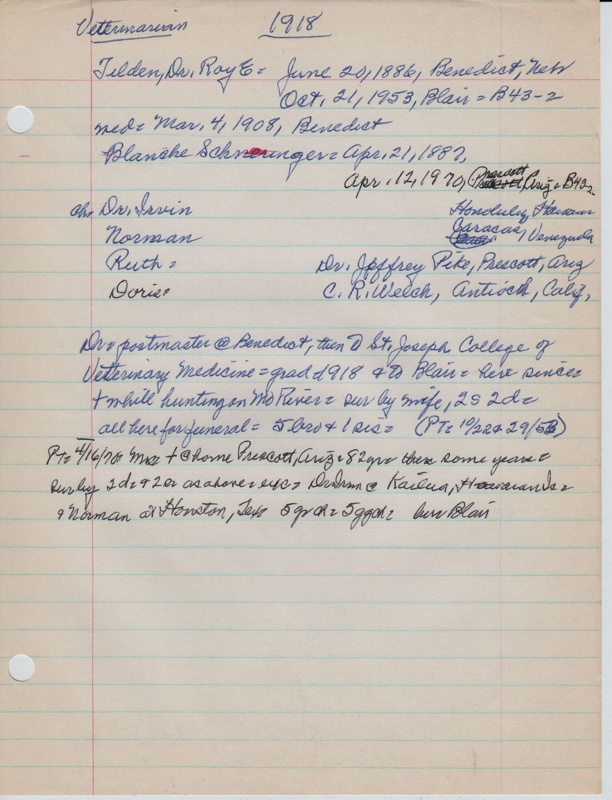 Veterinarian 1918
Tilden, Dr. Roy E = June 20, 1886, Benedict, Nebr
Oct. 21, 1953, Blair = B43-2
med = Mar. 4, 1908, Benedict
Blanche = Apr. 21, 1887,
Apr. 12, 1970, Prescott, Ariz = B43-2
ch = Dr. Irvin Honolulu, Hawaii
Norman Caracas, Venezuela
Ruth = Dr. Jeffrey Pike, Prescott, Ariz
Doris = C. R. Welch, Antioch, Calif,
Dr = postmaster @ Benedict, then to St. Joseph College of
Veterinary Medicine = grad 1918 & to Blair = here since =
+ while hunting on Mo River = sur by wife, 2s 2d =
all here for funeral = 5 bro & 1 sis = (PT = 10/22 & 29/53)
PT = 4/16/70 Mrs + @ home Prescott, Ariz = 82 yr = there some years =
sur by 2d & 2s as above = exc = Dr Irvin @ Kailua, Hawaiian Is =
& Norman at Houston, Tex 5 grch = 5 ggch = bur Blair